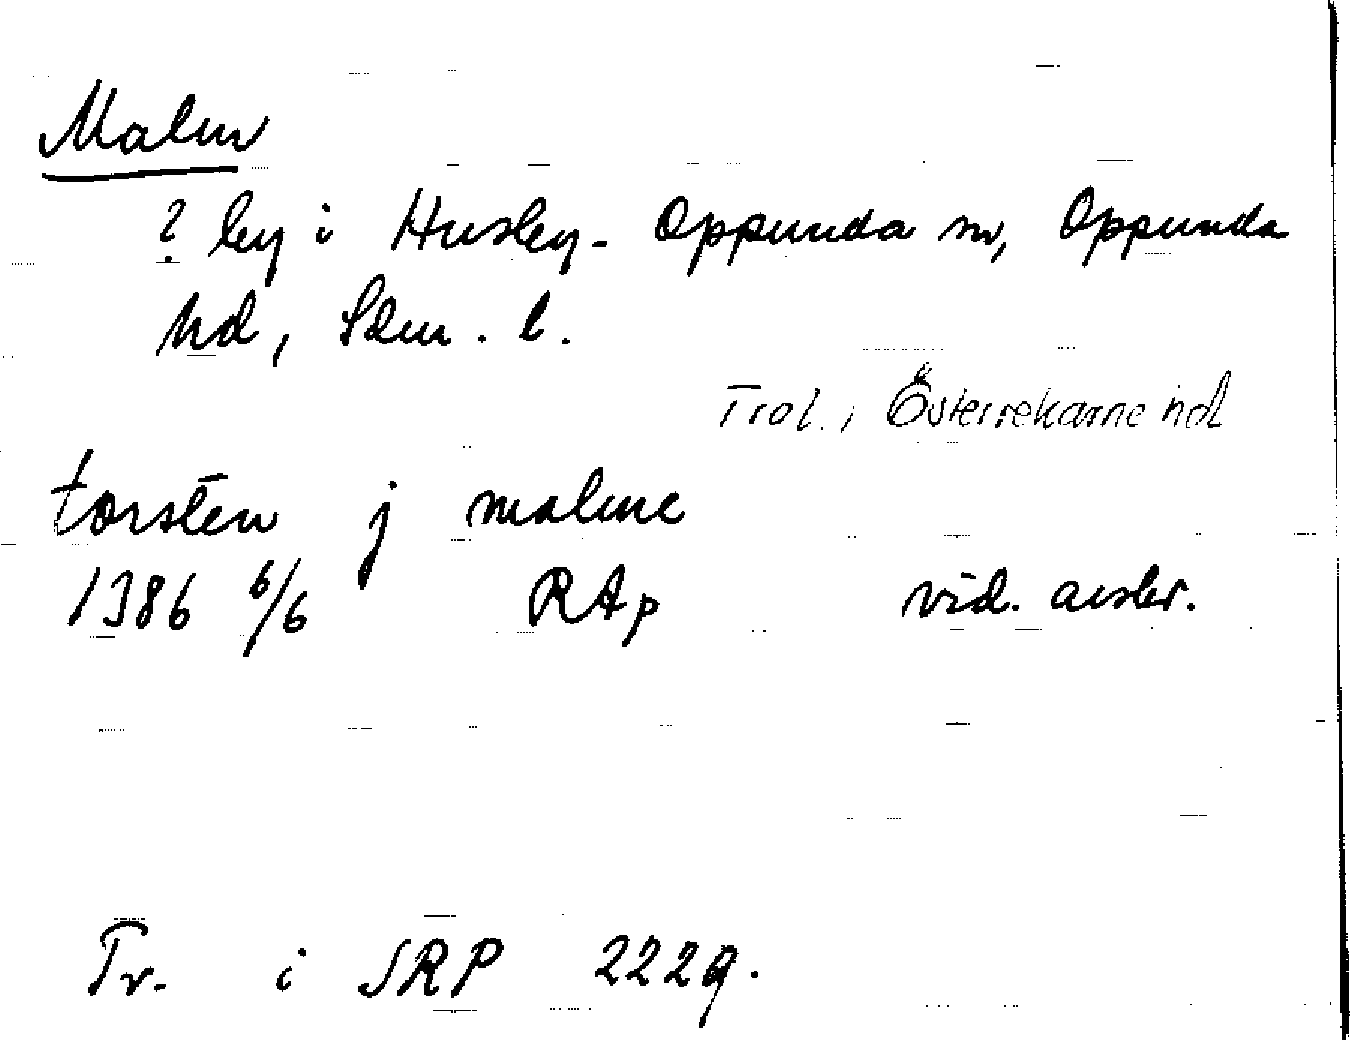 Malm
? by i Husby-Oppunda sn, Oppunda
hd, Sdm. l.
Trol. i Österrekarne hd
torsten j malme
1386 6/6 RAp vid. avskr.
Tr. i SRP 2229.